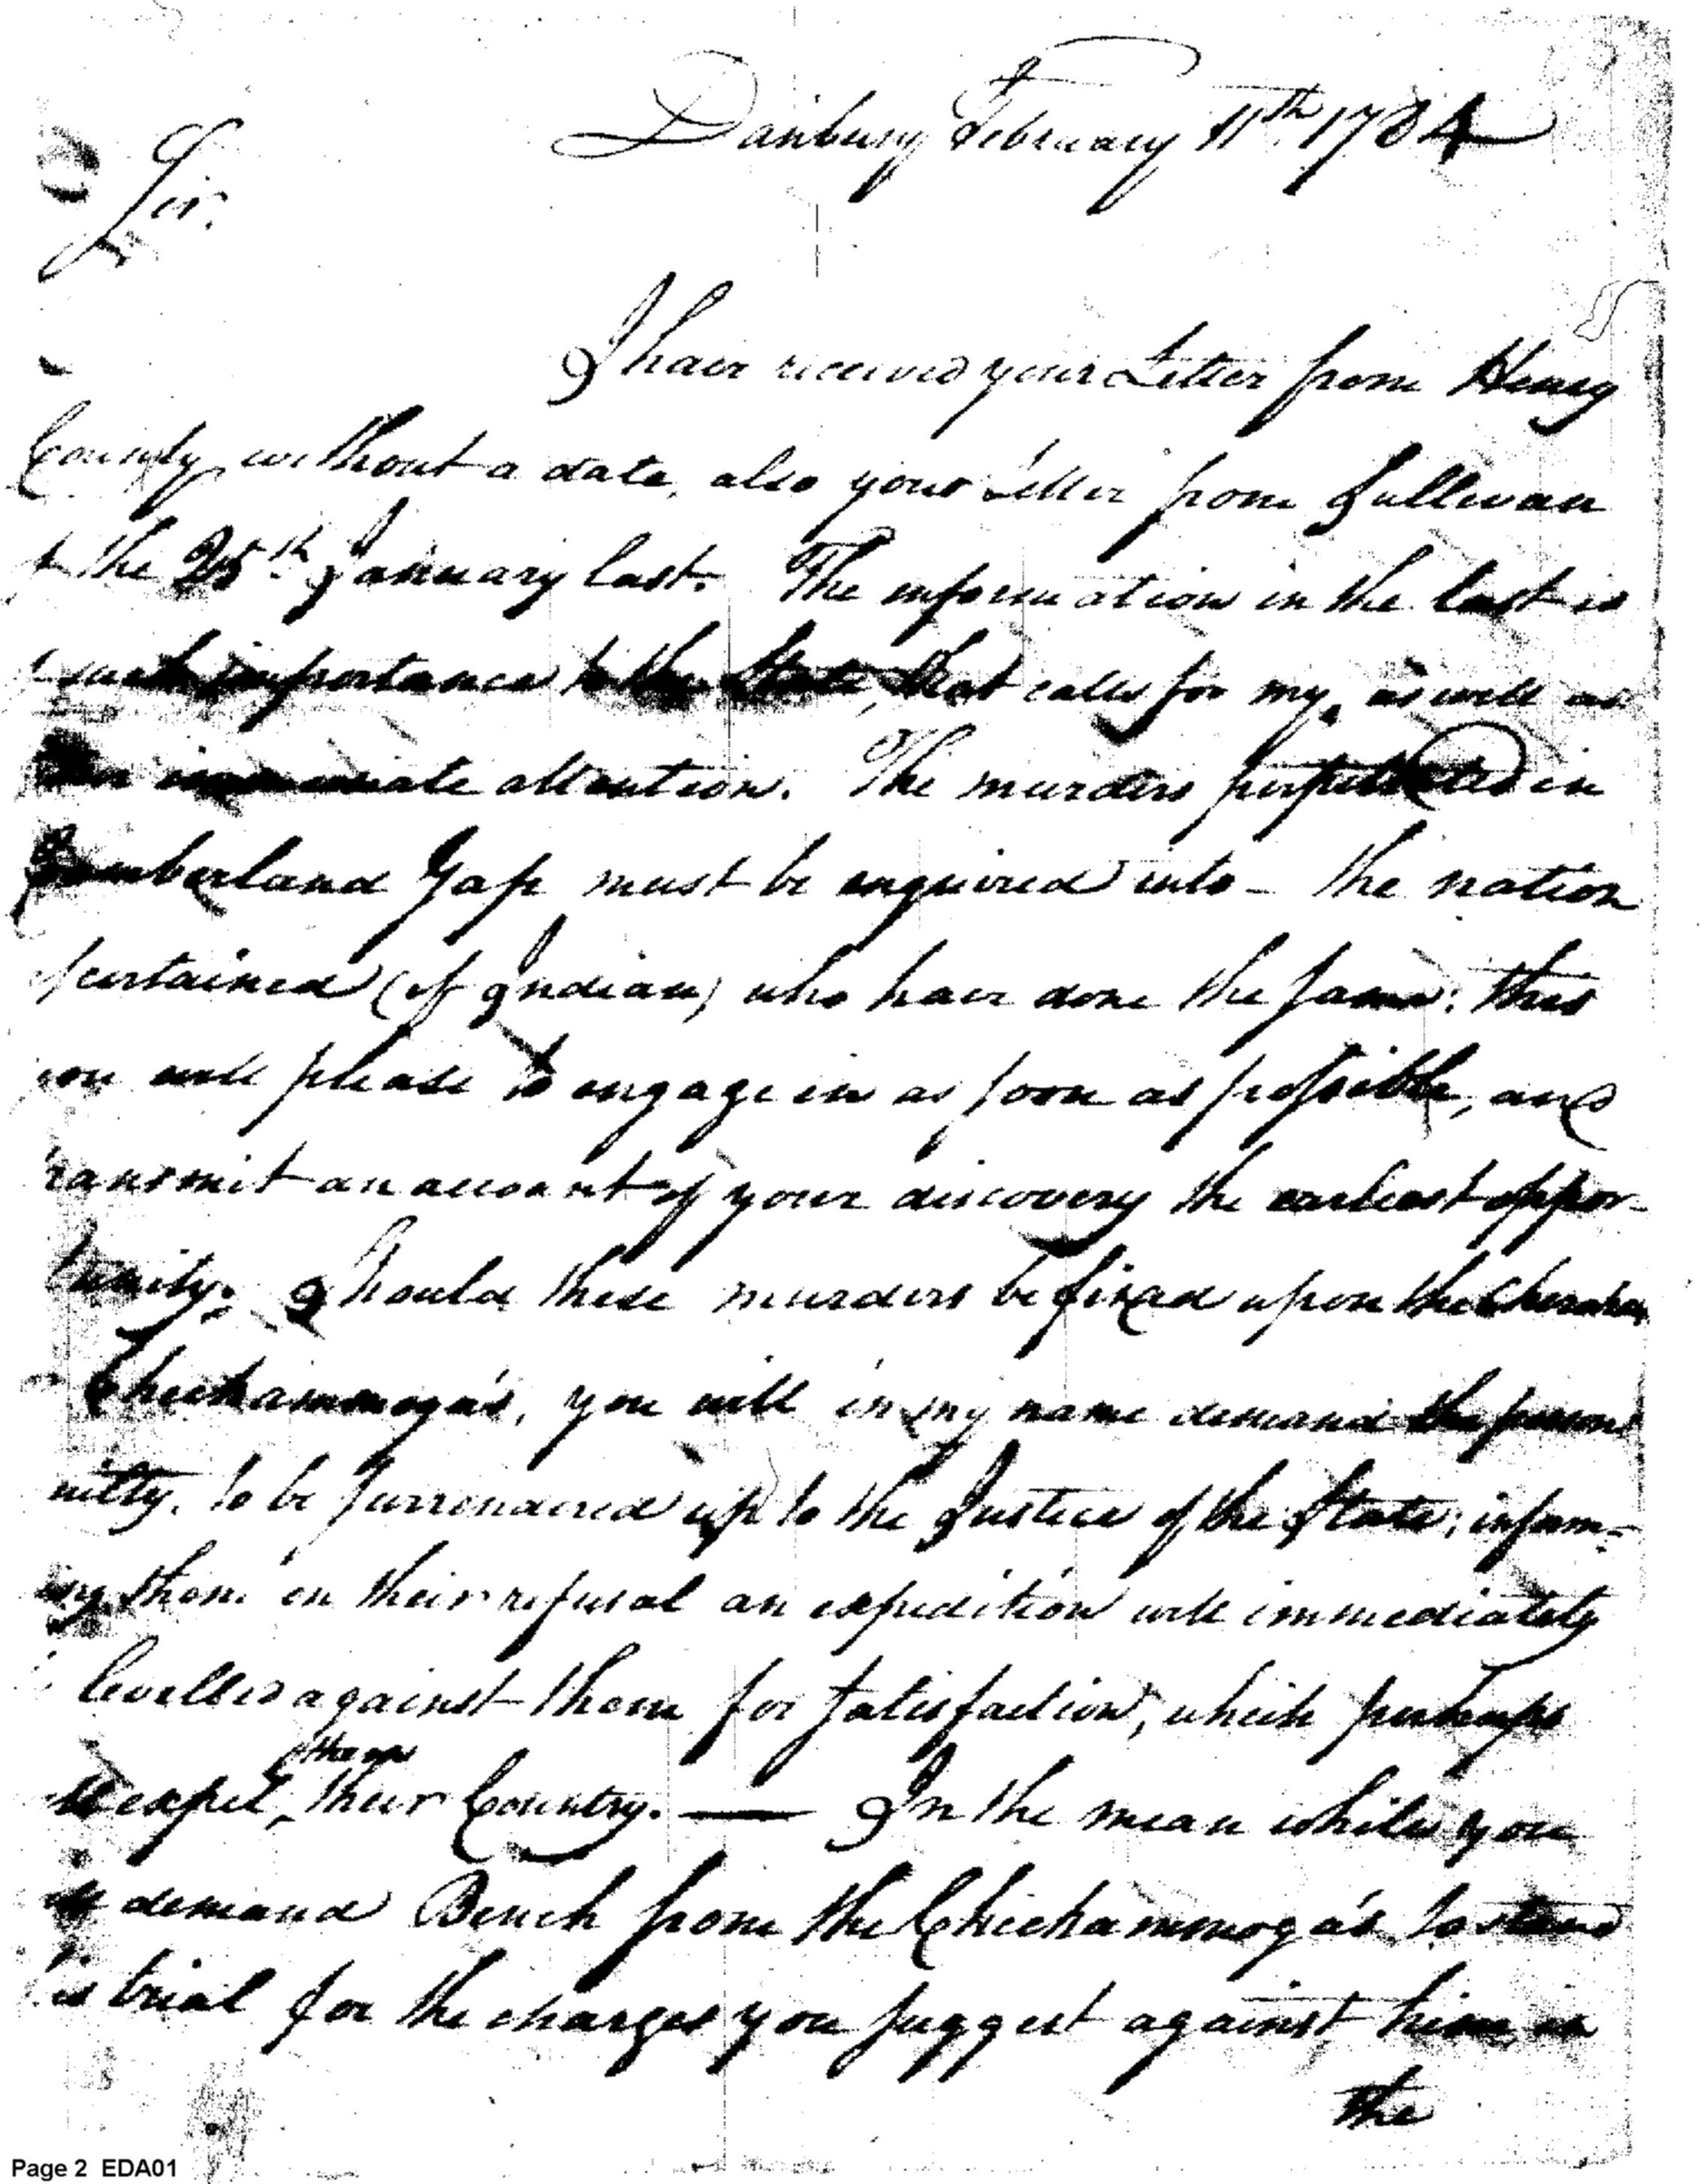 Danbury February 11th 1784
Sir.
I have received your Letter from Henry
County without a date, also your letter from Sullivan
the 25th January last. The information in the last is
such importance to the State, that calls for my, as well as
immediate attention. The murders perpetrated in
Cumberland Gap must be enquired into - the nation
scertained (of Indians) who have done the same: this
you will please to engage in as soon as possible, and
transmit an account of your discovery the earliest oppor-
tunity. Should these murders be fixed upon the
Chickammoga's, you will in my name demand the persons
uilty, to be surrendered up to the Justice of the State; inform-
ing them on their refusal an expedition will immediately
levelled against them for satisfaction, which perhaps
them
expel, their Country. — In the mean while you
demand Bench from the Chickammoga's to stand
is trial for the charges you suggest against him, in
the
Page 2 EDA01